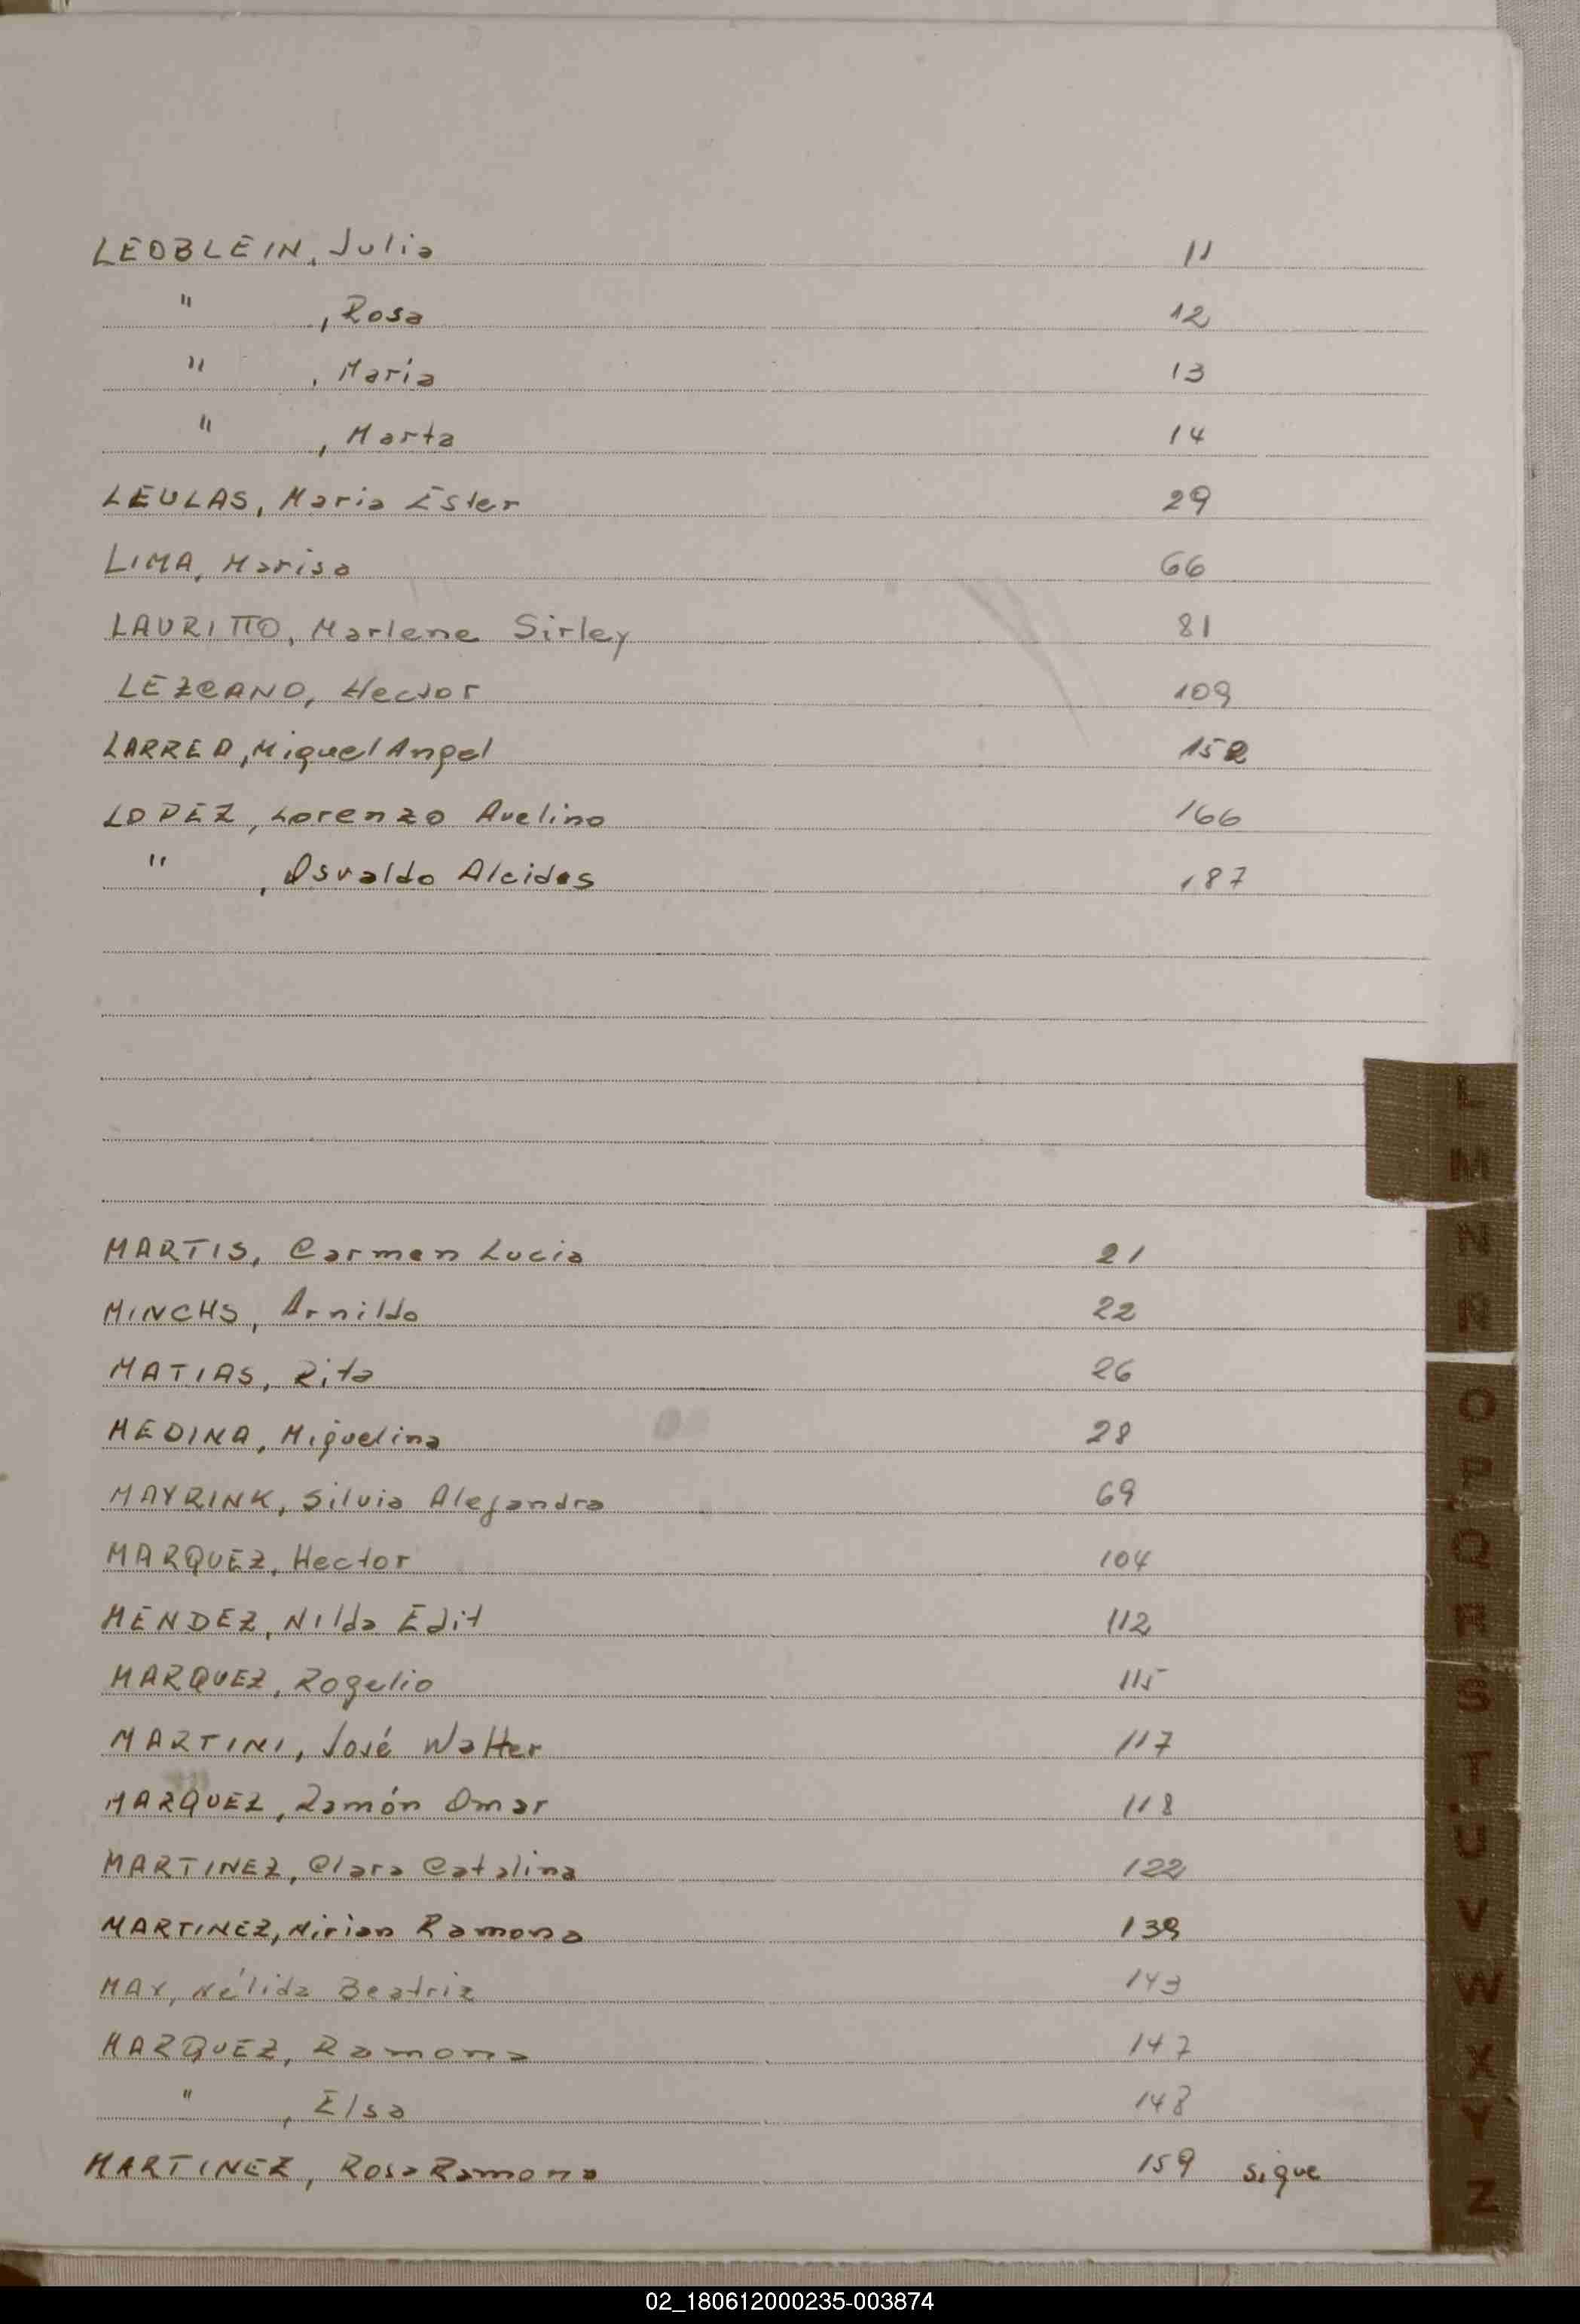 LEOBLEIN, Julia 11
" , Rosa 12
" , Maria 13
" , Marta 14
LEULAS, Maria Ester 29
LIMA, Marisa 66
LAURITTO, Marlene Sirley 81
LEZCANO, Hector 109
LARREA, Miguel Angel 152
LOPEZ, Lorenzo Avelino 166
" , Osvaldo Alcides 187
L
M
MARTIS, Carmen Lucia 21
MINCHS, Arnildo 22
MATIAS, Rita 26
MEDINA, Miguelina 28
MAYRINK, Silvia Alejandra 69
MARQUEZ, Hector 104
MENDEZ, Nilda Edit 112
MARQUEZ, Rogelio 115
MARTINI, José Walter 117
MARQUEZ, Ramón Omar 118
MARTINEZ, Clara Catalina 122
MARTINEZ, Mirian Ramona 139
MAY, Nélida Beatriz 143
MARQUEZ, Ramona 147
" , Elsa 148
MARTINEZ, Rosa Ramona 159 sigue
N
Ñ
O
P
Q
R
S
T
U
V
W
X
Y
Z
02_180612000235-003874